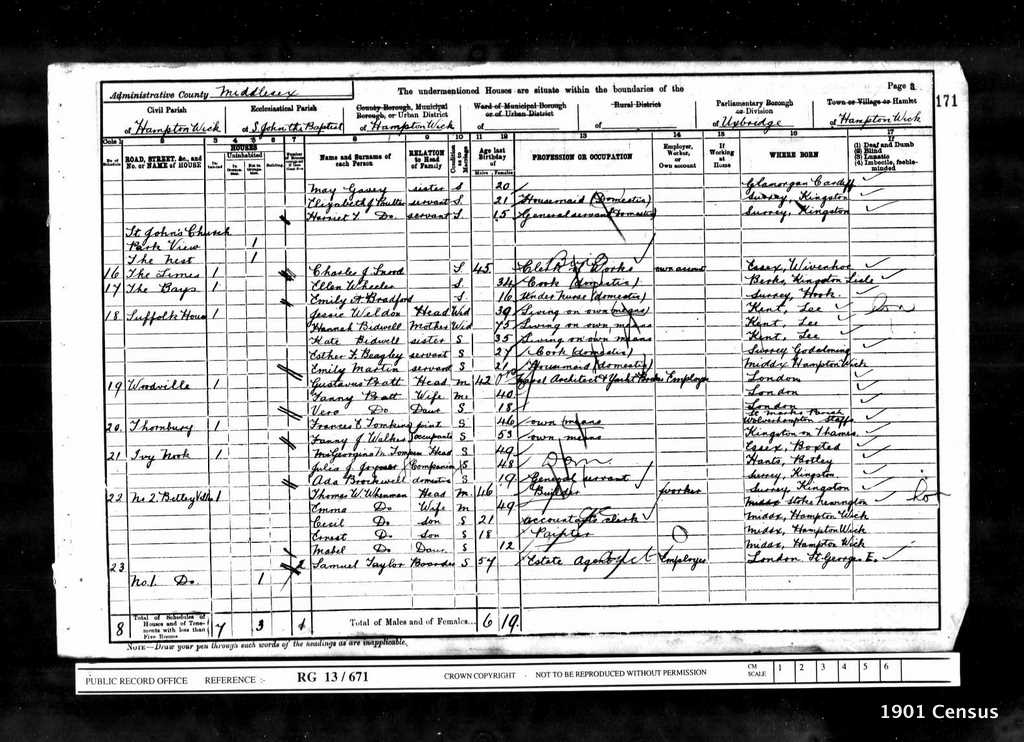 Administrative County Middlesex The undermentioned Houses are situate within the boundaries of the Page 8
171
Civil Parish Ecclesiastical Parish County Borough, Municipal Borough, or Urban District Ward of Municipal Borough or of Urban District Rural District Parliamentary Borough or Division Town or Village or Hamlet
of Hampton Wick of S. John the Baptist of Hampton Wick of of of Uxbridge of Hampton Wick
Cols 1 2 3 4 5 6 7 8 9 10 11 12 13 14 15 16 17
ROAD, STREET, &c., and No. or NAME of HOUSE HOUSES Uninhabited Name and Surname of each Person RELATION to Head of Family Condition as to Marriage Age last Birthday of Males Females PROFESSION OR OCCUPATION Employer, Worker, or Own account If Working at Home WHERE BORN (1) Deaf and Dumb (2) Blind (3) Lunatic (4) Imbecile, feeble-minded
May Gavey sister S 20 Glamorgan Cardiff
Elizabeth J servant S 21 Housemaid (Domestic) Surrey, Kingston
Harriet L Do. servant S 15 General servant (domestic) Surrey, Kingston
St John's Church
Park View 1
The Nest 1
16 The Limes 1 Charles J. S 45 Clerk of Works own account Essex, Wivenhoe
17 The Bays 1 Ellen Wheeler S 34 Cook (domestic) Berks, Kingston Lisle
Emily A Bradford S 16 Under Nurse (domestic) Surrey, Hook
18 Suffolk House 1 Jessie Weldon Head Wid 39 Living on own means Kent, Lee
Hannah Bidwell Mother Wid 75 Living on own means Kent, Lee
Kate Bidwell sister S 35 Living on own means Kent, Lee
Esther F. Beagley servant S 27 Cook (domestic) Surrey Godalming
Emily Martin servant S 21 Housemaid (domestic) Middx Hampton Wick
19 Woodville 1 Gustavus Pratt Head M 42 Naval Architect & Yacht Broker Employer London
Fanny Pratt Wife M 40 London
Vero Do Daur S 18 London
20 Thornbury 1 Frances E Tomkins joint S 46 own means Wolverhampton Staffs
Fanny J Walker occupants S 53 own means Kingston on Thames
21 Ivy Nook 1 Head S 49 Essex, Boxted
Julia J. Companion S 48 Hants, Botley
Ada Brockwell domestic S 19 General servant Surrey, Kingston
22 No 2. Betley Villas 1 Thomas W. Head M 46 Builder worker Surrey, Kingston
Emma Do Wife M 49 Middx Stoke Newington
Cecil Do son S 21 accountants clerk Middx, Hampton Wick
Ernest Do Son S 18 Painter Middx, Hampton Wick
Mabel Do Daur S 12 Middx, Hampton Wick
23 2 Samuel Taylor Boarder S 57 Estate Agent Employer London St Georges E.
No. 1. Do. 1
8 Total of Schedules of Houses and of Tenements with less than Five Rooms 7 3 1 Total of Males and of Females... 6 19
NOTE—Draw your pen through such words of the headings as are inapplicable.
PUBLIC RECORD OFFICE REFERENCE :- RG 13 / 671 CROWN COPYRIGHT - NOT TO BE REPRODUCED WITHOUT PERMISSION CM SCALE 1 2 3 4 5 6
1901 Census